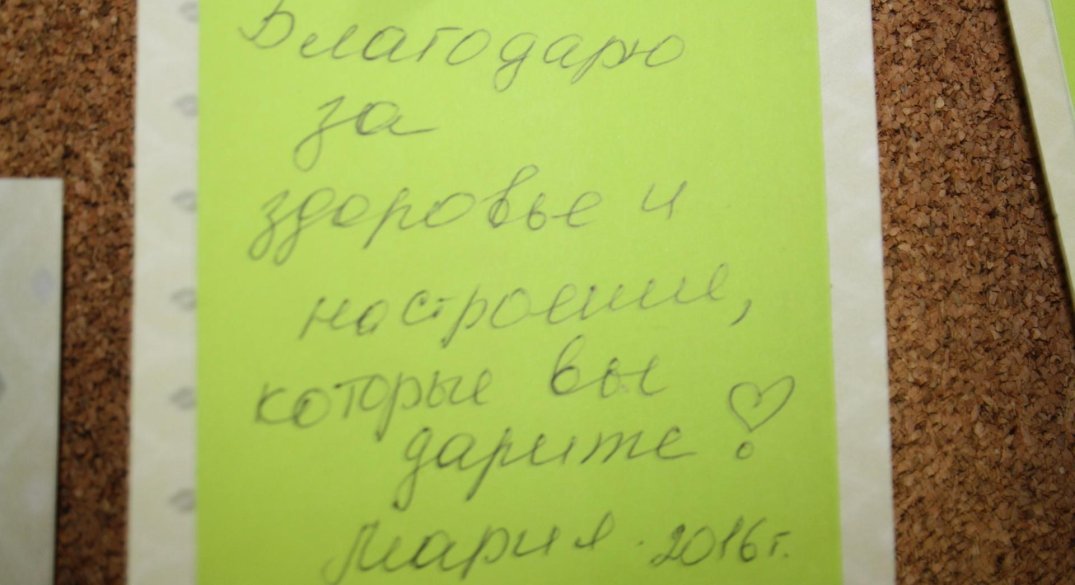 Благодарю
за
здоровье и
настроение,
которые вы
дарите!
Мария. 2016г.